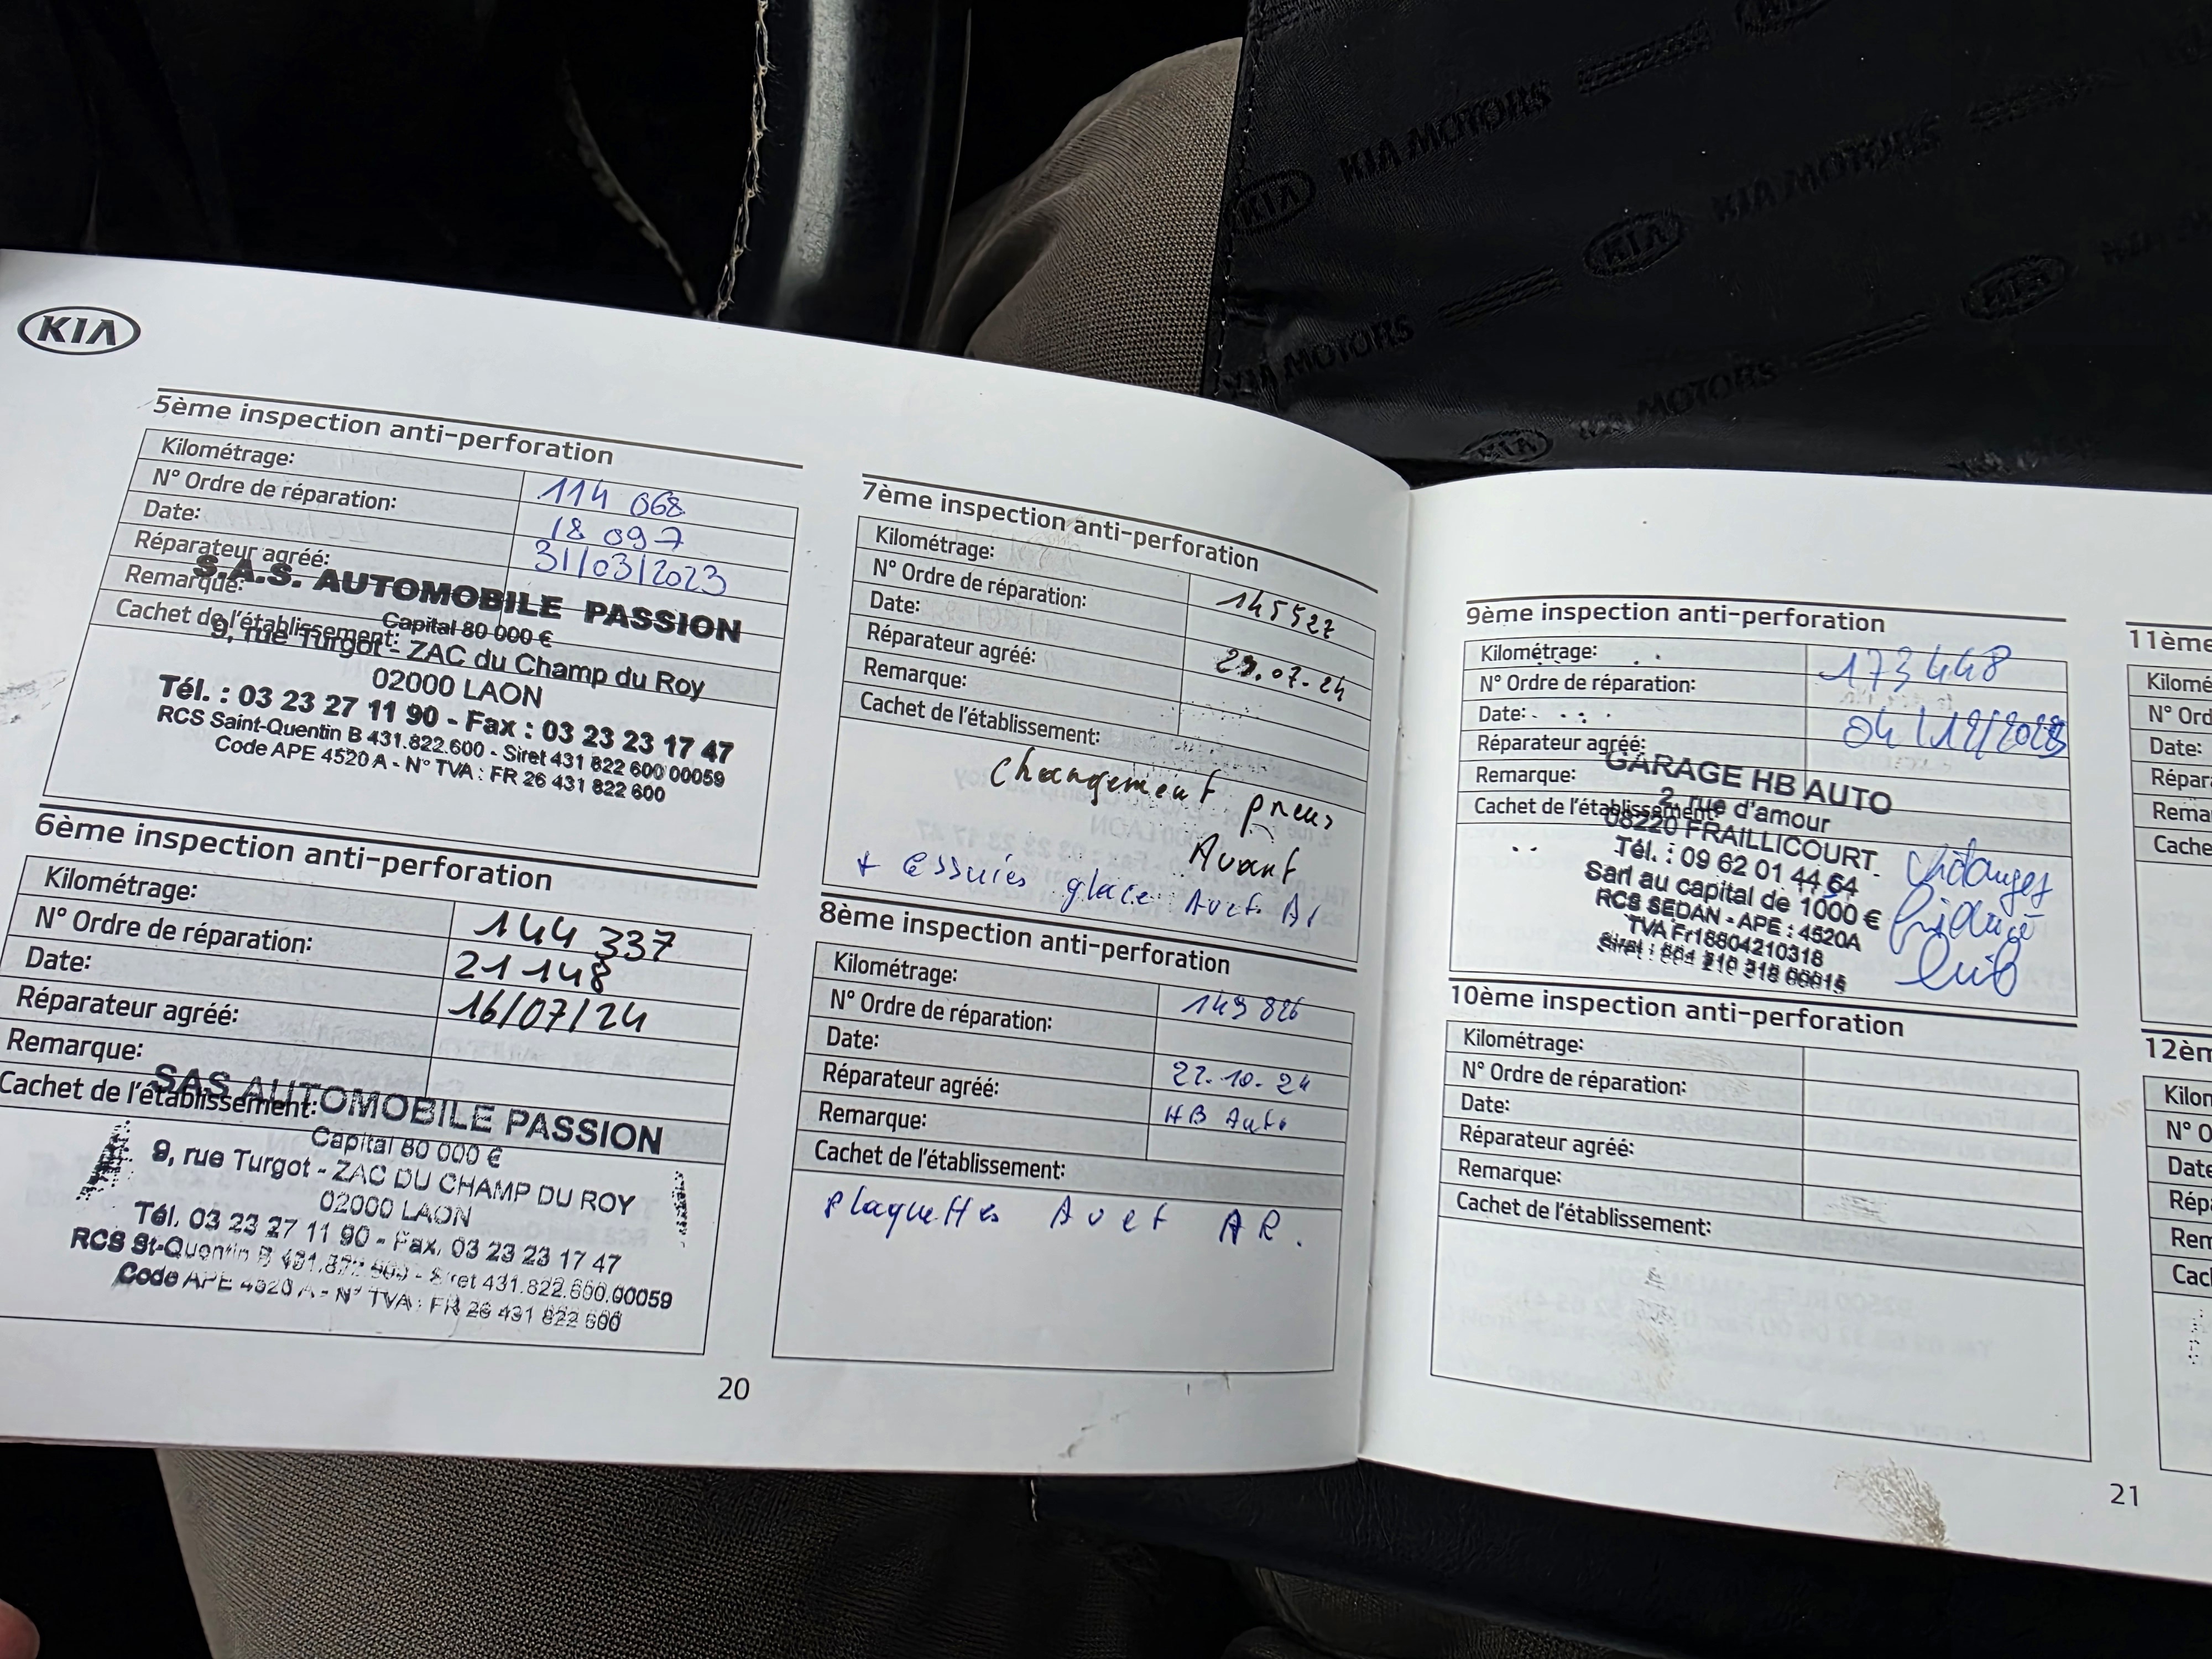 KIA MOTORS
KIA
KIA MOTORS
KIA
KIA MOTORS
KIA
KIA MOTORS
KIA
KIA
5ème inspection anti-perforation
Kilométrage: 114 068
N° Ordre de réparation: 18 097
Date: 31/03/2023
Réparateur agréé:
Remarque:
Cachet de l'établissement:
S.A.S. AUTOMOBILE PASSION
Capital 80 000 €
9, rue Turgot - ZAC du Champ du Roy
02000 LAON
Tél. : 03 23 27 11 90 - Fax : 03 23 23 17 47
RCS Saint-Quentin B 431.822.600 - Siret 431 822 600 00059
Code APE 4520 A - N° TVA : FR 26 431 822 600
6ème inspection anti-perforation
Kilométrage: 144 337
N° Ordre de réparation: 21 148
Date: 16/07/24
Réparateur agréé:
Remarque:
Cachet de l'établissement:
SAS AUTOMOBILE PASSION
Capital 80 000 €
9, rue Turgot - ZAC DU CHAMP DU ROY
02000 LAON
Tél. 03 23 27 11 90 - Fax. 03 23 23 17 47
RCS St-Quentin B 431.822.600 - Siret 431.822.600.00059
Code APE 4520 A - N° TVA : FR 26 431 822 600
20
7ème inspection anti-perforation
Kilométrage: 145527
N° Ordre de réparation:
Date: 29.07-24
Réparateur agréé:
Remarque:
Cachet de l'établissement:
Changement pneus
Avant
+ essuies glace Av et Ar
8ème inspection anti-perforation
Kilométrage: 149 826
N° Ordre de réparation:
Date: 22-10-24
Réparateur agréé: HB Auto
Remarque:
Cachet de l'établissement:
plaquettes Av et AR.
9ème inspection anti-perforation
Kilométrage: 173448
N° Ordre de réparation:
Date: 04/12/2025
Réparateur agréé:
Remarque:
Cachet de l'établissement:
GARAGE HB AUTO
2, rue d'amour
08220 FRAILLICOURT
Tél. : 09 62 01 44 54
Sarl au capital de 1000 €
RCS SEDAN - APE : 4520A
TVA Fr15804210318
10ème inspection anti-perforation
Kilométrage:
N° Ordre de réparation:
Date:
Réparateur agréé:
Remarque:
Cachet de l'établissement:
21
11ème
Kilomé
N° Ord
Date:
Répar
Rema
Cache
12èm
Kilon
N° O
Date
Rép
Rem
Cac